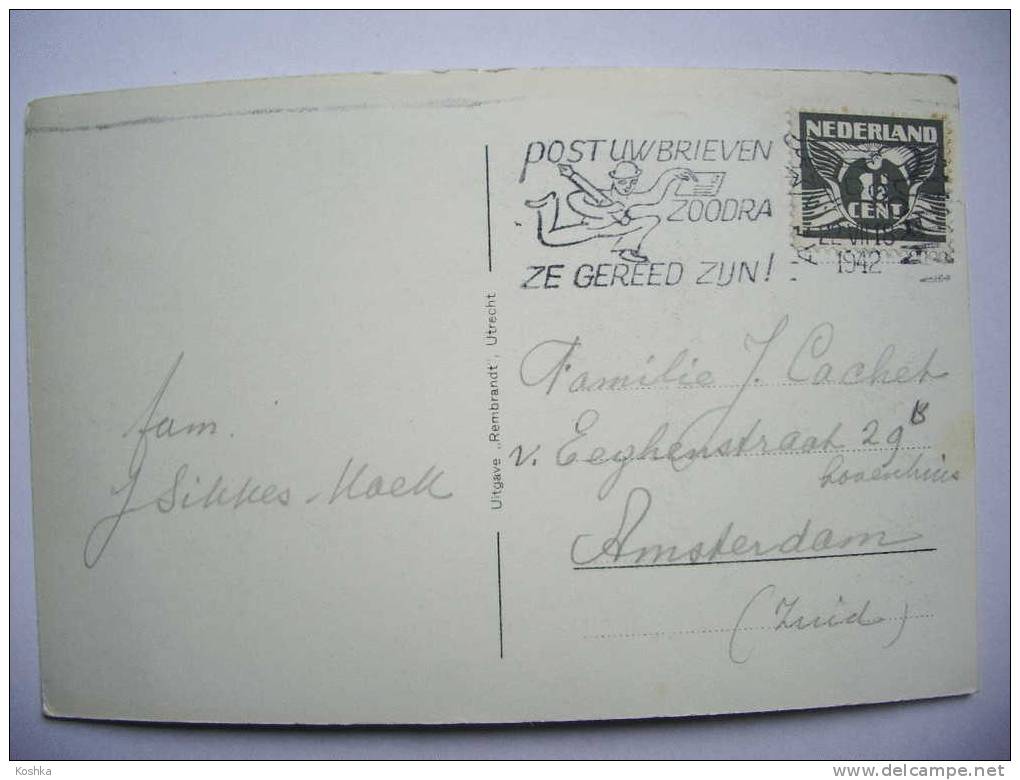 POST UW BRIEVEN
ZOODRA
ZE GEREED ZIJN!
NEDERLAND
1½
CENT
22 VII 18
1942
Uitgave „Rembrandt", Utrecht
fam.
J Sikkes-Moek
Familie J. Cachet
v. Eeghenstraat 29 B
bovenhuis
Amsterdam
(Zuid)
Koshka
delcampe.net